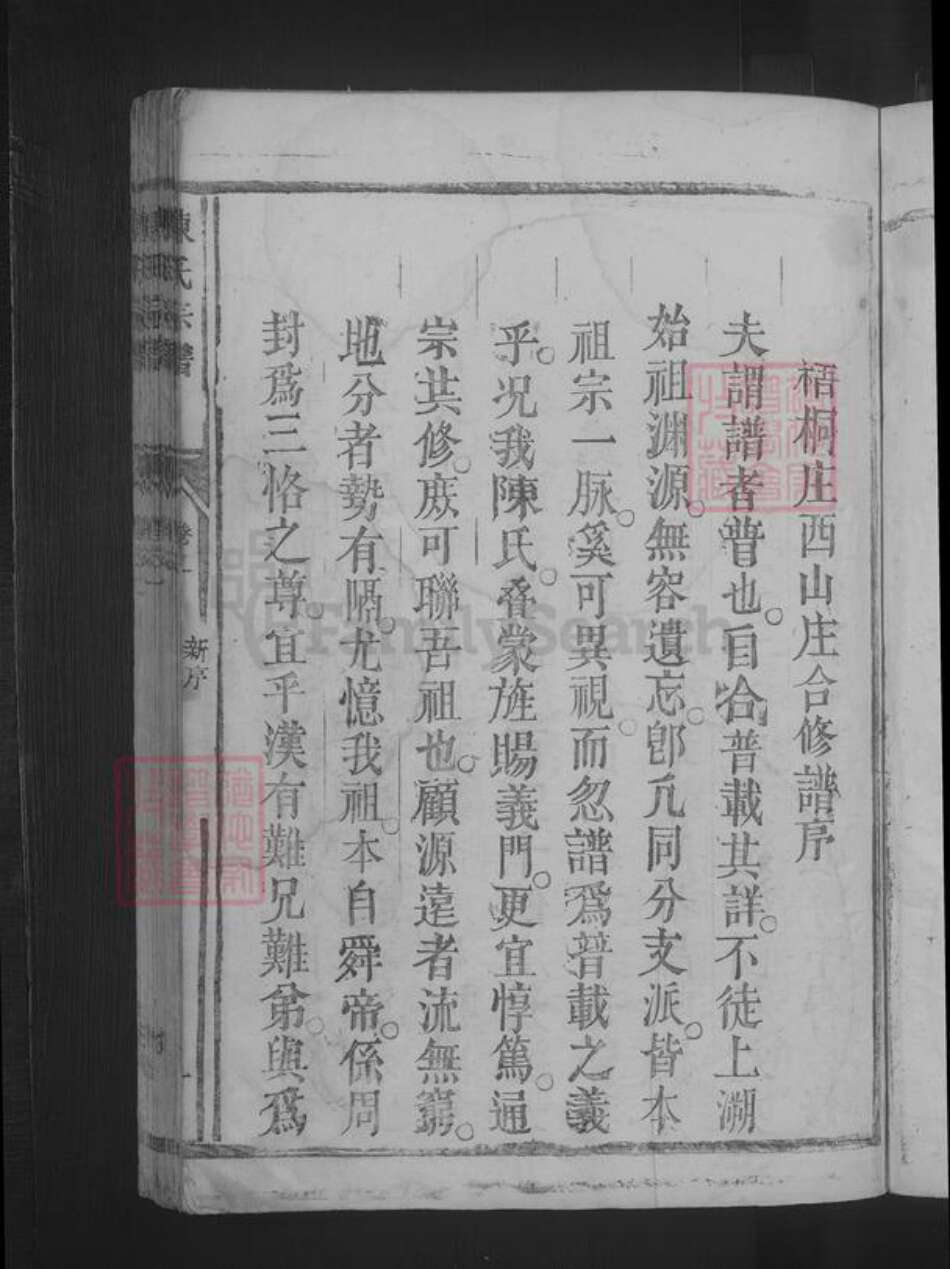 梧桐庄西山庄合修譜序
夫謂譜者普也。自合普載其詳。不徒上溯
始祖渊源。無容遺忘。卽凢同分支派。皆本
祖宗一脉。奚可異視。而忽譜爲普載之義
乎。况我陳氏。叠蒙旌賜義門。更宜惇篤。通
宗共修。庶可聯吾祖也。顧源遠者流無窮。
地分者勢有隔。尤憶我祖。本自舜帝。係周
封爲三恪之尊。宜乎漢有難兄難弟。與爲
陳氏宗譜
卷一
新序
FamilySearch